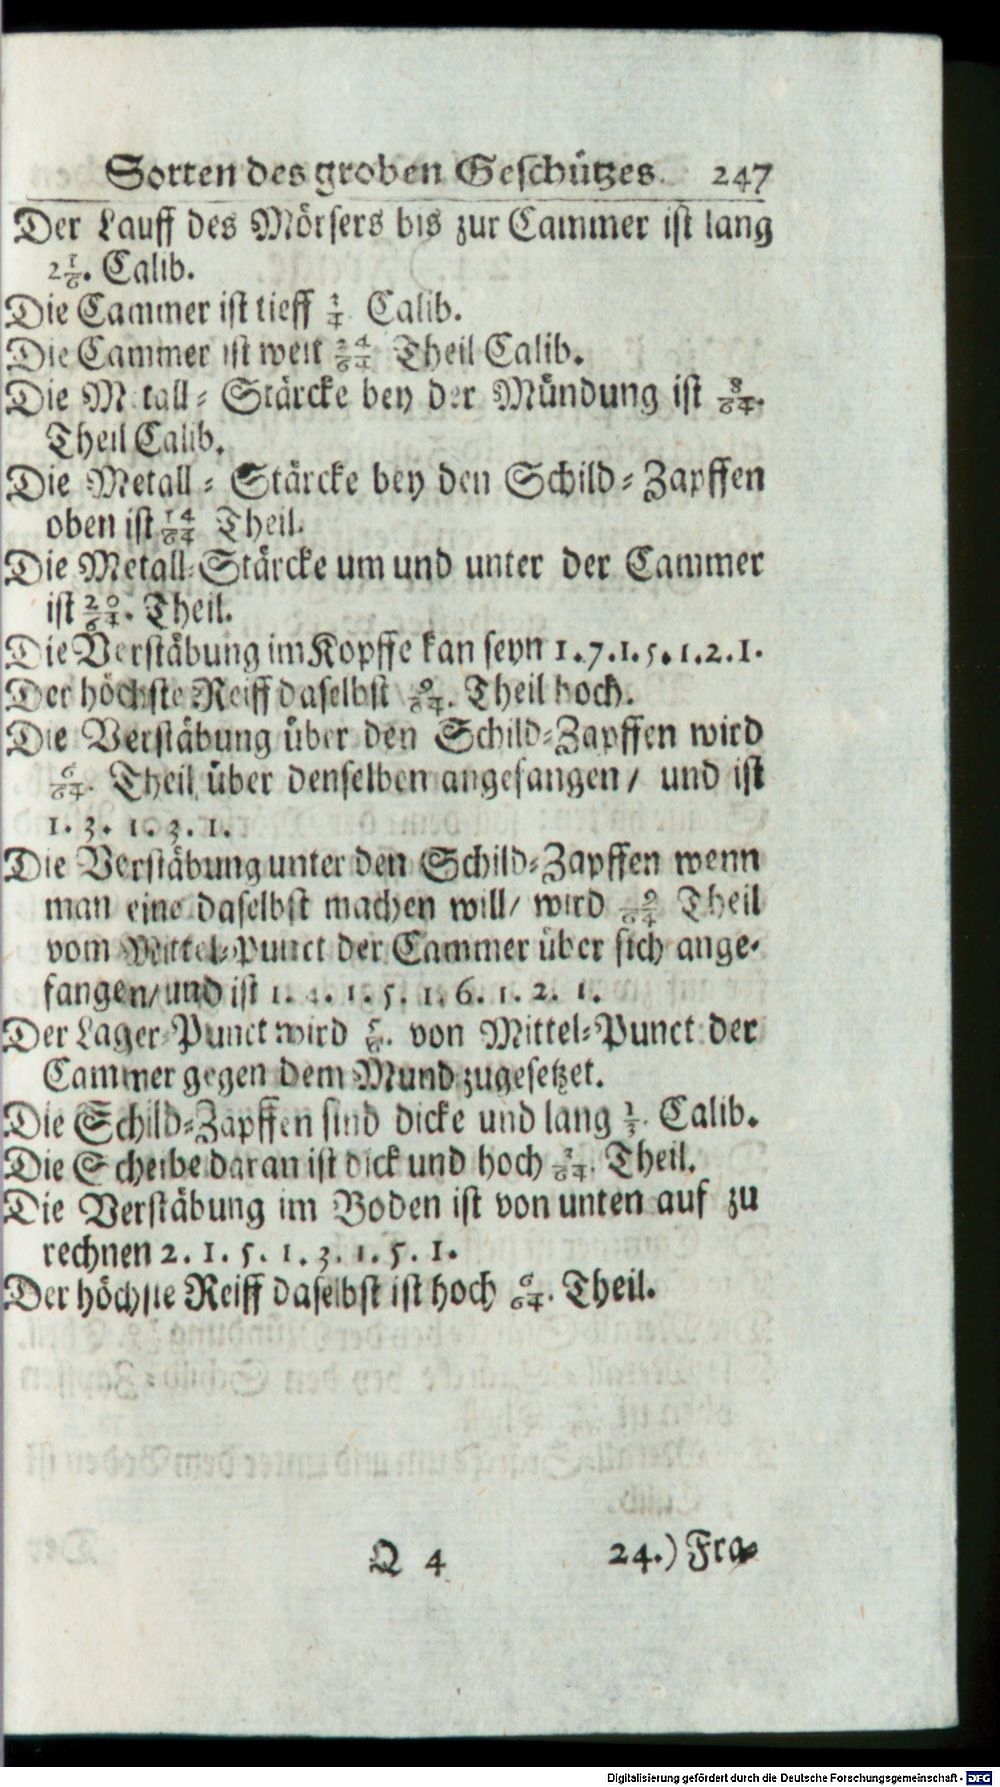 Sorten des groben Geschützes. 247
Der Lauff des Mörsers bis zur Cammer ist lang
2 1/6. Calib.
Die Cammer ist tieff Calib.
Die Cammer ist weit 24/64 Theil Calib.
Die M tall- Stärcke bey der Mündung ist 8/64.
Theil Calib.
Die Metall- Stärcke bey den Schild-Zapffen
oben ist 14/64 Theil.
Die Metall-Stärcke um und unter der Cammer
ist 20/64. Theil.
Die Verstäbung im Kopffe kan seyn 1.7.1.5.1.2.1.
Der höchste Reiff daselbst 9/64. Theil hoch.
Die Verstäbung über den Schild-Zapffen wird
6/64. Theil über denselben angefangen/ und ist
1. 3. 1. 3. 1.
Die Verstäbung unter den Schild-Zapffen wenn
man eine daselbst machen will/ wird 9/64 Theil
vom Mittel-Punct der Cammer über sich ange-
fangen/und ist 1. 4. 1. 5. 1. 6. 1. 2. 1.
Der Lager-Punct wird von Mittel-Punct der
Cammer gegen dem Mund zugesetzet.
Die Schild-Zapffen sind dicke und lang 1/3. Calib.
Die Scheibe daran ist dick und hoch Theil.
Die Verstäbung im Boden ist von unten auf zu
rechnen 2. 1. 5. 1. 3. 1. 5. 1.
Der höchste Reiff daselbst ist hoch 6/64. Theil.
Q 4 24.) Fra-
Digitalisierung gefördert durch die Deutsche Forschungsgemeinschaft - DFG